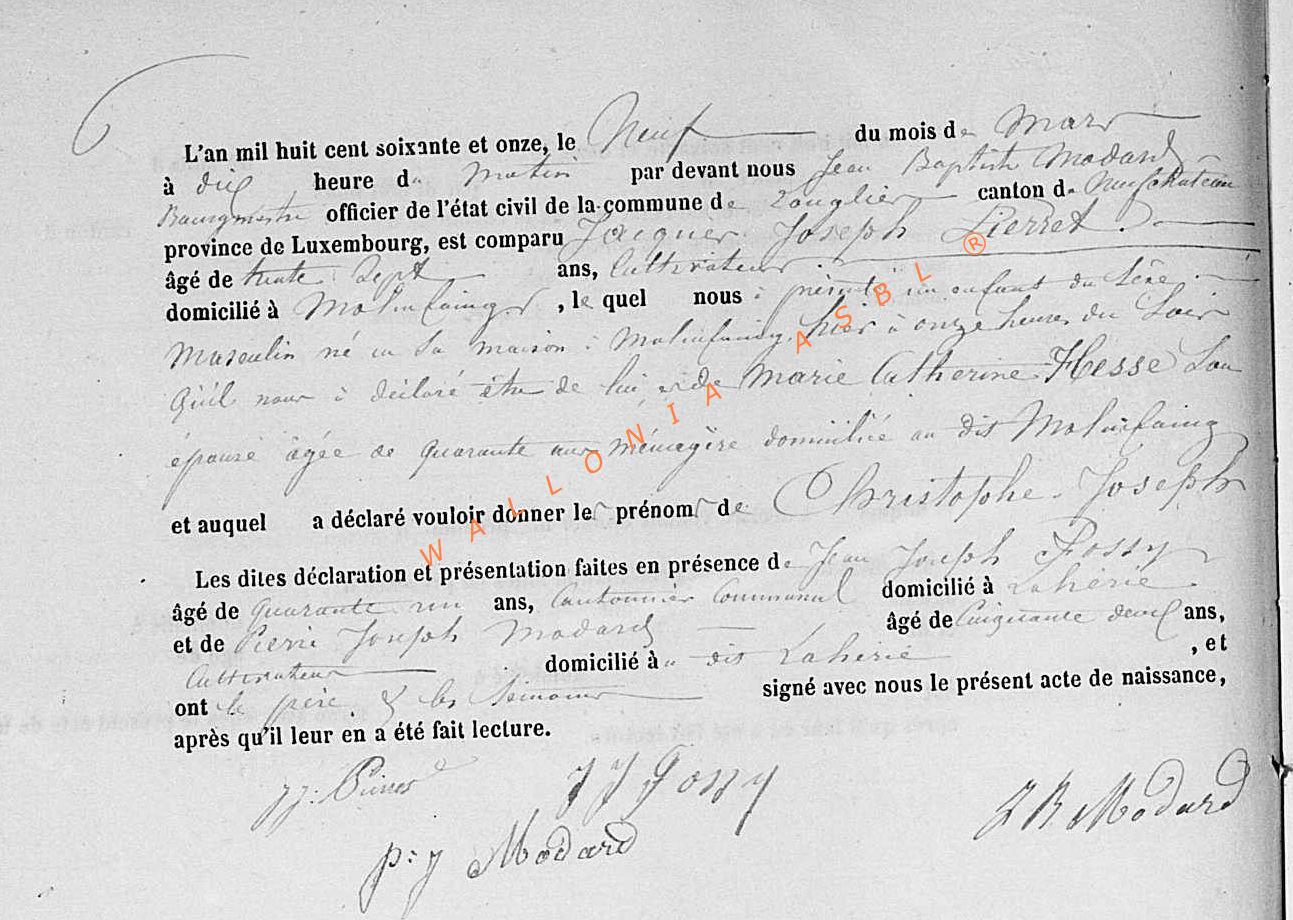 6
L'an mil huit cent soixante et onze, le Neuf du mois de Mars
à dix heure du Matin par devant nous Jean Baptiste Modard
Bourgmestre officier de l'état civil de la commune de Longlier canton de Neufchateau
province de Luxembourg, est comparu Jacques Joseph Pierret
âgé de trente Sept ans, Cultivateur
domicilié à Molinfaing, le quel nous à présenté un enfant du Sexe
Masculin né en Sa maison à Molinfaing, hier à onze heures du Soir
Qu'il nous à déclaré être de lui et de Marie Catherine Hesse Son
épouse âgée de quarante ans ménagère domiciliée au dit Molinfaing
et auquel a déclaré vouloir donner les prénoms de Christophe Joseph
Les dites déclaration et présentation faites en présence de Jean Joseph Fossy
âgé de quarante un ans, Cantonnier Communal domicilié à Lahérie
et de Pierre Joseph Modard âgé de Cinquante deux ans,
Cultivateur domicilié à au dit Lahérie, et
ont le père & les témoins signé avec nous le présent acte de naissance,
après qu'il leur en a été fait lecture.
JJ. Pierret JJ Fossy J B Modard
p: J Modard
WALLONIA ASBL ®